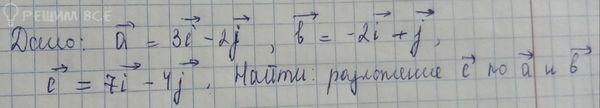 РЕШИМ ВСЁ
Дано: a⃗ = 3i⃗ - 2j⃗, b⃗ = -2i⃗ + j⃗,
c⃗ = 7i⃗ - 4j⃗. Найти: разложение c⃗ по a⃗ и b⃗